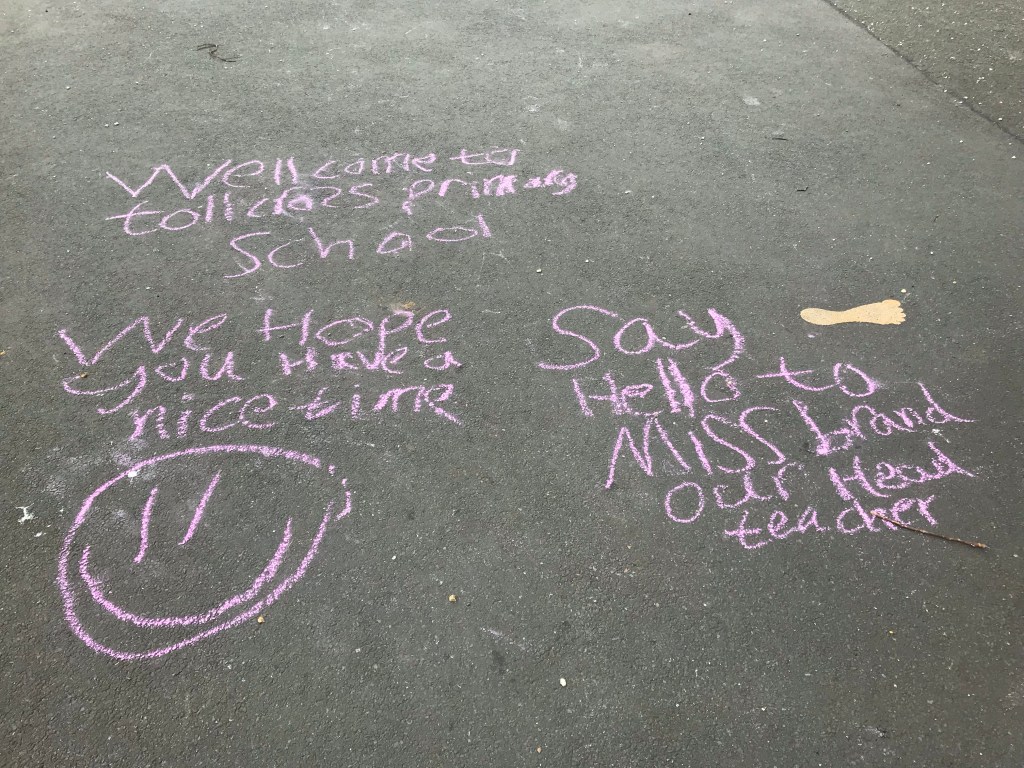 Wellcome to
tollcross primary
School
We Hope
you Have a
nice time
Say
Hello to
MISS brand
our Head
teacher